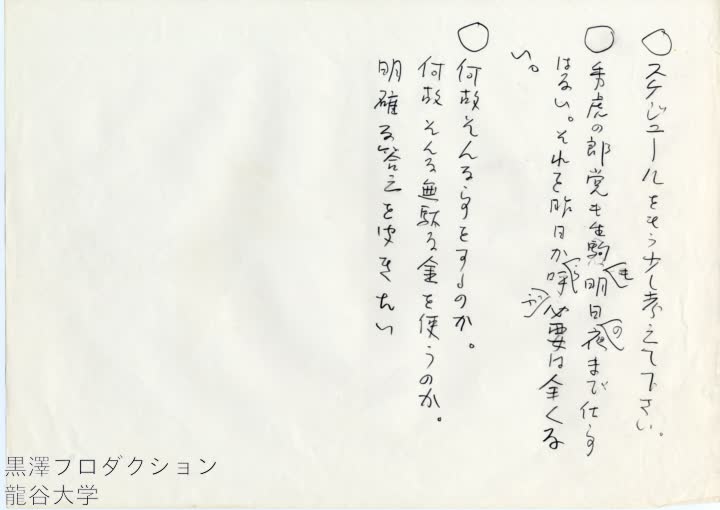 ○ スケジュールをもう少し考えて下さい。
○ 秀虎の郎党も生駒も明日の夜まで仕事
はない。それを昨日から呼ぶ必要は全くな
い。
○ 何故そんな事をするのか。
何故そんな無駄な金を使うのか。
明確な答えをききたい
黒澤プロダクション
龍谷大学